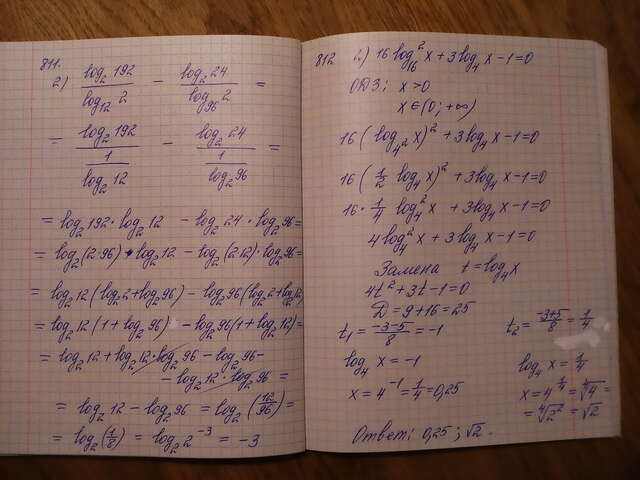 811.
2) log₂192 / log₁₂2 − log₂24 / log₉₆2 =
= log₂192 / (1 / log₂12) − log₂24 / (1 / log₂96) =
= log₂192 · log₂12 − log₂24 · log₂96 =
= log₂(2·96) · log₂12 − log₂(2·12) · log₂96 =
= log₂12 (log₂2 + log₂96) − log₂96 (log₂2 + log₂12)
= log₂12 (1 + log₂96) − log₂96 (1 + log₂12) =
= log₂12 + log₂12 · log₂96 − log₂96 −
− log₂12 · log₂96 =
= log₂12 − log₂96 = log₂(12/96) =
= log₂(1/8) = log₂2⁻³ = −3
812 2) 16 log²₁₆x + 3 log₄x − 1 = 0
ОДЗ: x > 0
x ∈ (0; +∞)
16 (log₄²x)² + 3 log₄x − 1 = 0
16 (1/2 log₄x)² + 3 log₄x − 1 = 0
16 · 1/4 log₄²x + 3 log₄x − 1 = 0
4 log₄²x + 3 log₄x − 1 = 0
Замена t = log₄x
4t² + 3t − 1 = 0
D = 9 + 16 = 25
t₁ = (−3−5)/8 = −1 t₂ = (−3+5)/8 = 1/4
log₄x = −1 log₄x = 1/4
x = 4⁻¹ = 1/4 = 0,25 x = 4^(1/4) = ⁴√4 =
= ⁴√2² = √2
Ответ: 0,25; √2.